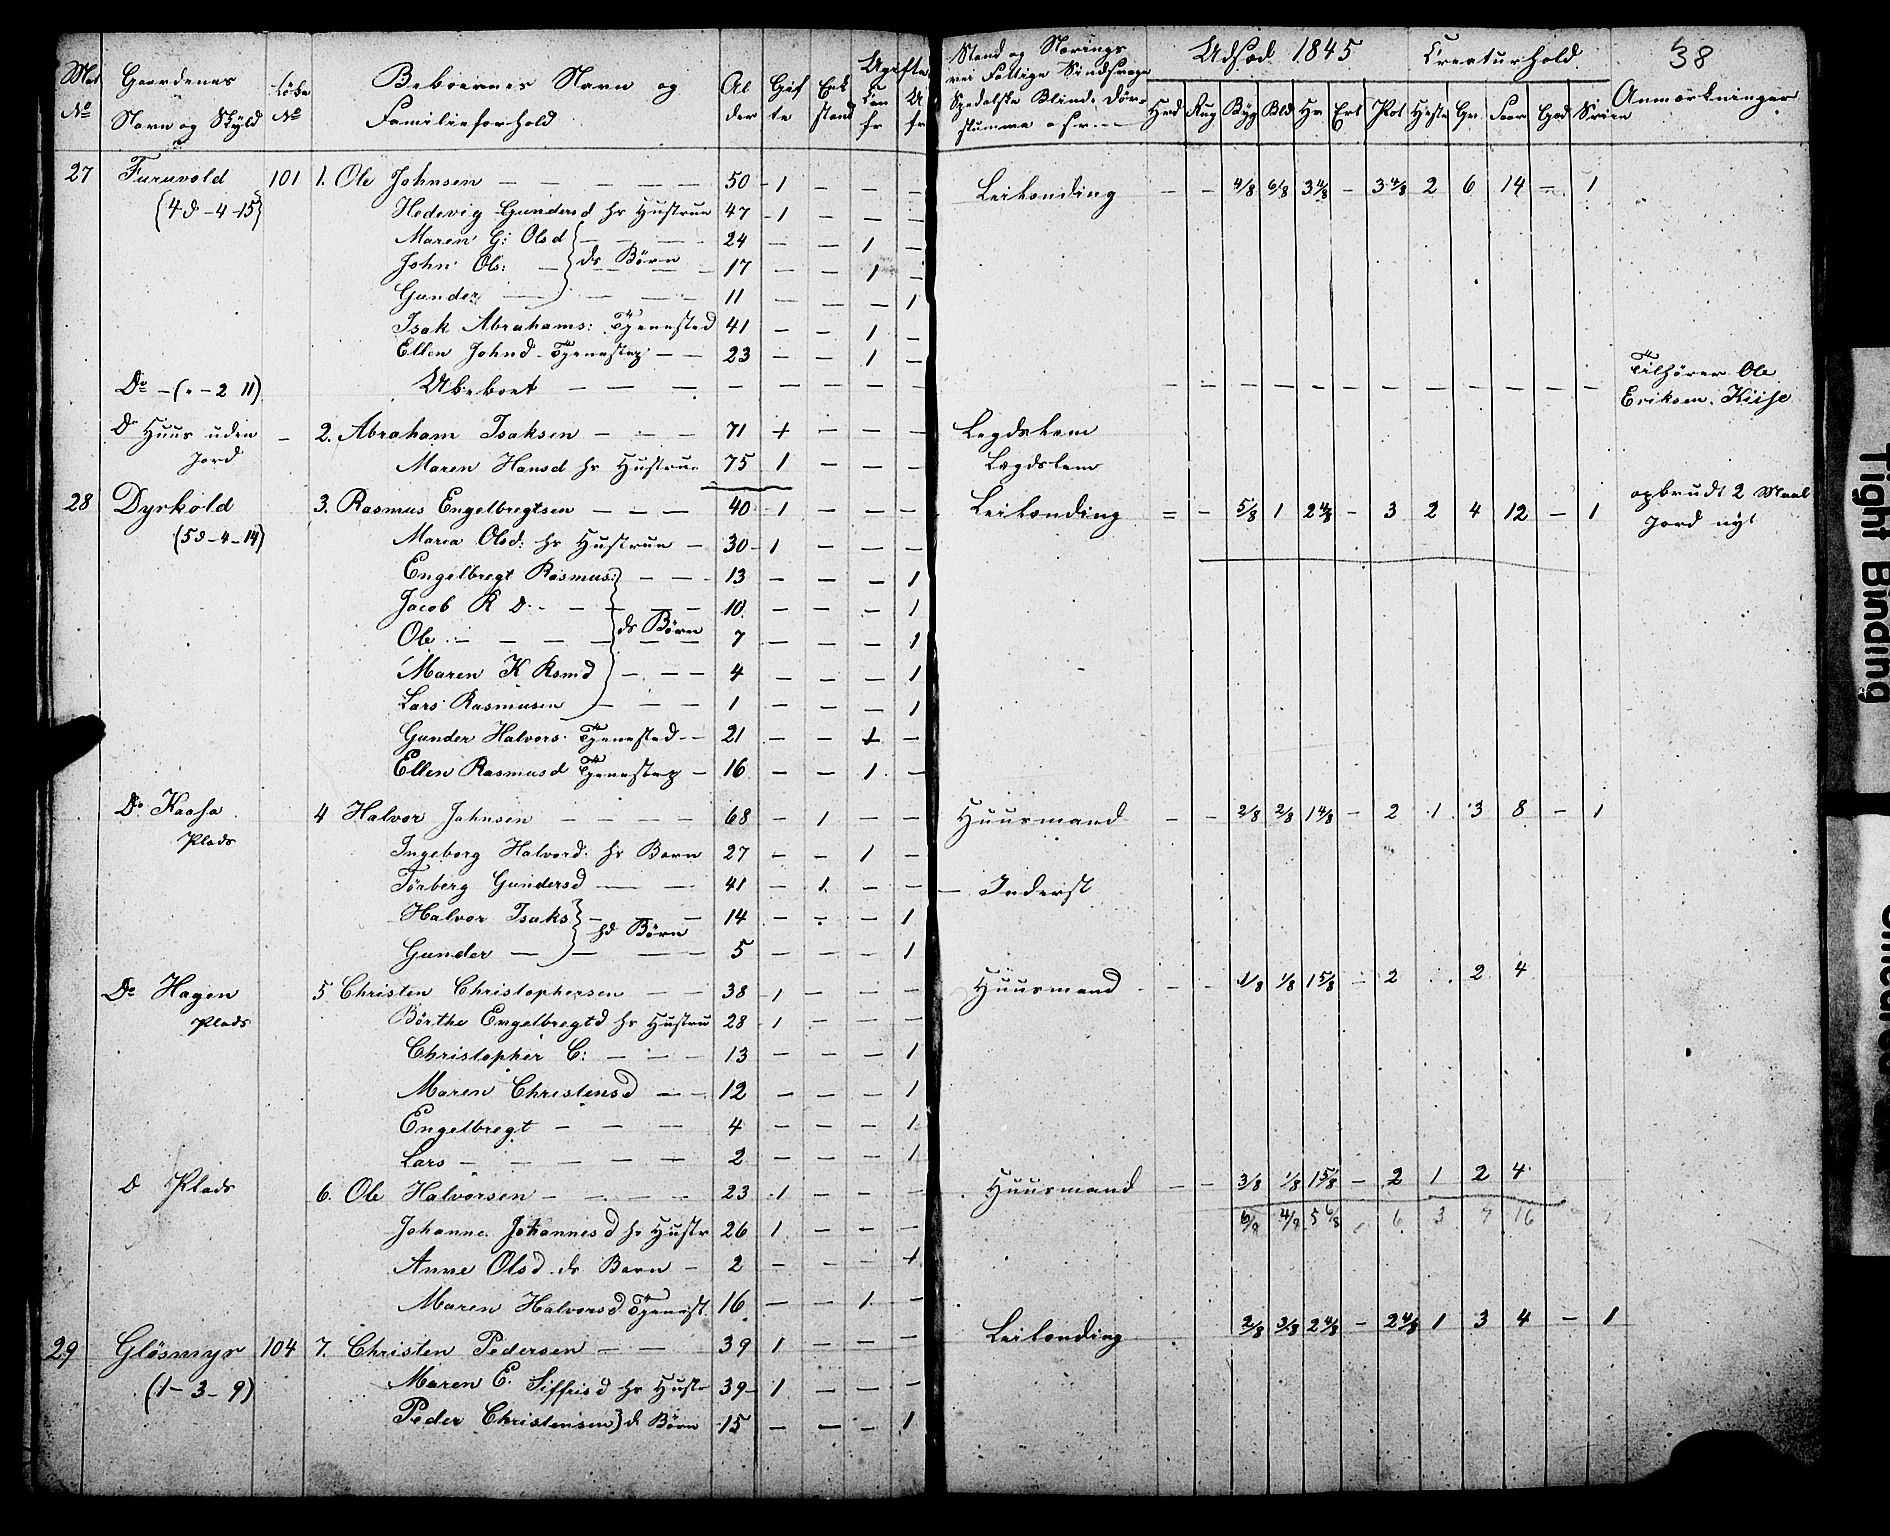 Mat No Gaardenes Navn og Skyld Løbe No Beboernes Navn og Familieforhold Al der Gif te Enk stand Ugifte Con fr U fr
Stand og Nærings vei Fattige Sindssvage Spedalske Blinde Døv- stumme o s v. Udsæd 1845 Creaturhold 38
Hved Rug Byg Bld Hv Ert Pot Heste Gr. Faar Ged Sviin Anmærkninger
27 Furuvold 101 1. Ole Johnsen — — — — — 50 - 1 — — — Leilænding — — 4/8 6/8 3 4/8 — 3 4/8 2 6 14 — 1
(4d - 4 - 15) Hedevig Gundersd hs Hustrue 47 - 1 — — —
Maren G: Olsd — — — 24 — — 1 —
John Ols: — ds Børn 17 — — 1 —
Gunder — — — 11 — — — 1
Isak Abrahams: Tjenested 41 — — 1 —
Ellen Johnd. Tjenestep — — 23 — — 1 —
Do — (" - 2 11) Ubeboet — — — — Tilhører Ole Eriksen. Kiise
Do Huus uden Jord — 2. Abraham Isaksen — — — 71 1 — — — Legdslem
Maren Hansd hs Hustrue 75 1 — — — Lægdslem
28 Dyrkold 3. Rasmus Engelbregtsen — — — 40 - 1 — — — Leilænding = — 5/8 1 2 4/8 — 3 2 4 12 — 1 opbrudt 2 Maal Jord nyt
(5d - 4 - 14) Maria Olsd: hs Hustrue — 30 - 1 — — —
Engelbregt Rasmus: — — 13 — — — 1
Jacob R D. — — — — 10 — — — 1
Ole — — — — ds Børn 7 — — — 1
Maren K Rsmd — — — 4 — — — 1
Lars Rasmusen — — — 1 — — — 1
Gunder Halvors. Tjenested — 21 — — 1 —
Ellen Rasmusd Tjenestep — 16 — — 1 —
Do Kaasa Plads 4 Halvor Johnsen — — — — 68 — 1 — — Huusmand — — 2/8 2/8 1 4/8 — 2 1 3 8 — 1
Ingeborg Halvord. hs Barn 27 — — 1 —
Tørberg Gundersd — — 41 — 1 — — — Inderst
Halvor Isaks — — — 14 — — — 1
Gunder — — hd Børn 5 — — — 1
Do Hagen Plads 5 Christen Christophersen — — 38 - 1 — — — Huusmand — — 1/8 1/8 1 5/8 — 2 2 4
Børthe Engelbregtd hs Hustru 28 - 1 — — —
Christopher C: — — — 13 — — — 1
Maren Christensd — — 12 — — — 1
Engelbregt — — — 4 — — — 1
Lars — — — — — 2 — — — 1
D Plads 6. Ole Halvorsen — — — — 23 1 — — — Huusmand — — 3/8 1/8 1 5/8 — 2 1 2 4
Johanne Johannesd hs Hustr 26 1 — — — 6/8 4/8 5 6/8 6 3 9 16 1
Anne Olsd ds Barn — 2 — — — 1
Maren Halvorsd Tjenest. 16 — — 1 —
29 Gløsmyr 104 7. Christen Pedersen — — 39 1 — — — Leilænding 2/8 3/8 2 4/8 — 2 4/8 1 3 4 — 1
(1 - 3 - 9) Maren E. Siffrisd hs Hust 39 - 1 — — —
Peder Christensen d Børn 15 — — — 1
Tight Binding